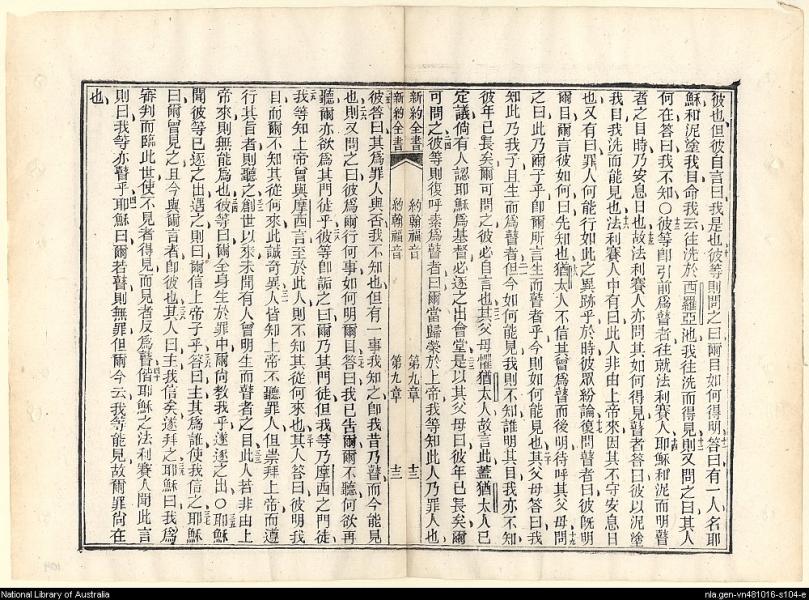 彼也但彼自言曰我是也彼等則問之曰爾目如何得明答曰有一人名耶
穌和泥塗我目命我云往洗於西羅亞池我往洗而得見則又問之曰其人
何在答曰我不知○彼等卽引前爲瞽者往就法利賽人耶穌和泥而明瞽
者之目時乃安息日也故法利賽人亦問其如何得見瞽者答曰彼以泥塗
我目我洗而能見也法利賽人中有曰此人非由上帝來因其不守安息日
也又有曰罪人何能行如此之異跡乎於時彼眾紛論復問瞽者曰彼旣明
爾目爾言彼如何曰先知也猶太人不信其曾爲瞽而後明待呼其父母問
之曰此乃爾子乎卽爾所言生而瞽者乎今則如何能見也其父母答曰我
知此乃我子且生而爲瞽者但今如何能見我則不知誰明其目我亦不知
彼年已長矣爾可問之彼必自言也其父母懼猶太人故言此蓋猶太人已
定議倘有人認耶穌爲基督必逐之出會堂是以其父母曰彼年已長矣爾
可問之彼等則復呼素爲瞽者曰爾當歸榮於上帝我等知此人乃罪人也
新約全書 約翰福音 第九章 十三
新約全書 約翰福音 第九章 十三
彼答曰其爲罪人與否我不知也但有一事我知之卽我昔乃瞽而今能見
也則又問之曰彼爲爾行何事如何明爾目答曰我已告爾爾不聽何欲再
聽爾亦欲爲其門徒乎彼等卽詬之曰爾乃其門徒但我等乃摩西之門徒
我等知上帝曾與摩西言至於此人則不知其從何來也其人答曰彼明我
目而爾不知其從何來此誠奇異人皆知上帝不聽罪人但崇拜上帝而遵
行其旨者則聽之創世以來未聞有人曾明生而瞽者之目此人若非由上
帝來則無能爲也彼等曰爾全身生於罪中爾尙教我乎遂逐之出○耶穌
聞彼等已逐之出遇之則曰爾信上帝子乎答曰主其爲誰使我信之耶穌
曰爾曾見之且今與爾言者卽彼也其人曰主我信矣遂拜之耶穌曰我爲
審判而臨此世使不見者得見而見者反爲瞽偕耶穌之法利賽人聞此言
則曰我等亦瞽乎耶穌曰爾若瞽則無罪但爾今云我等能見故爾罪尙在
也
National Library of Australia
nla.gen-vn481016-s104-e